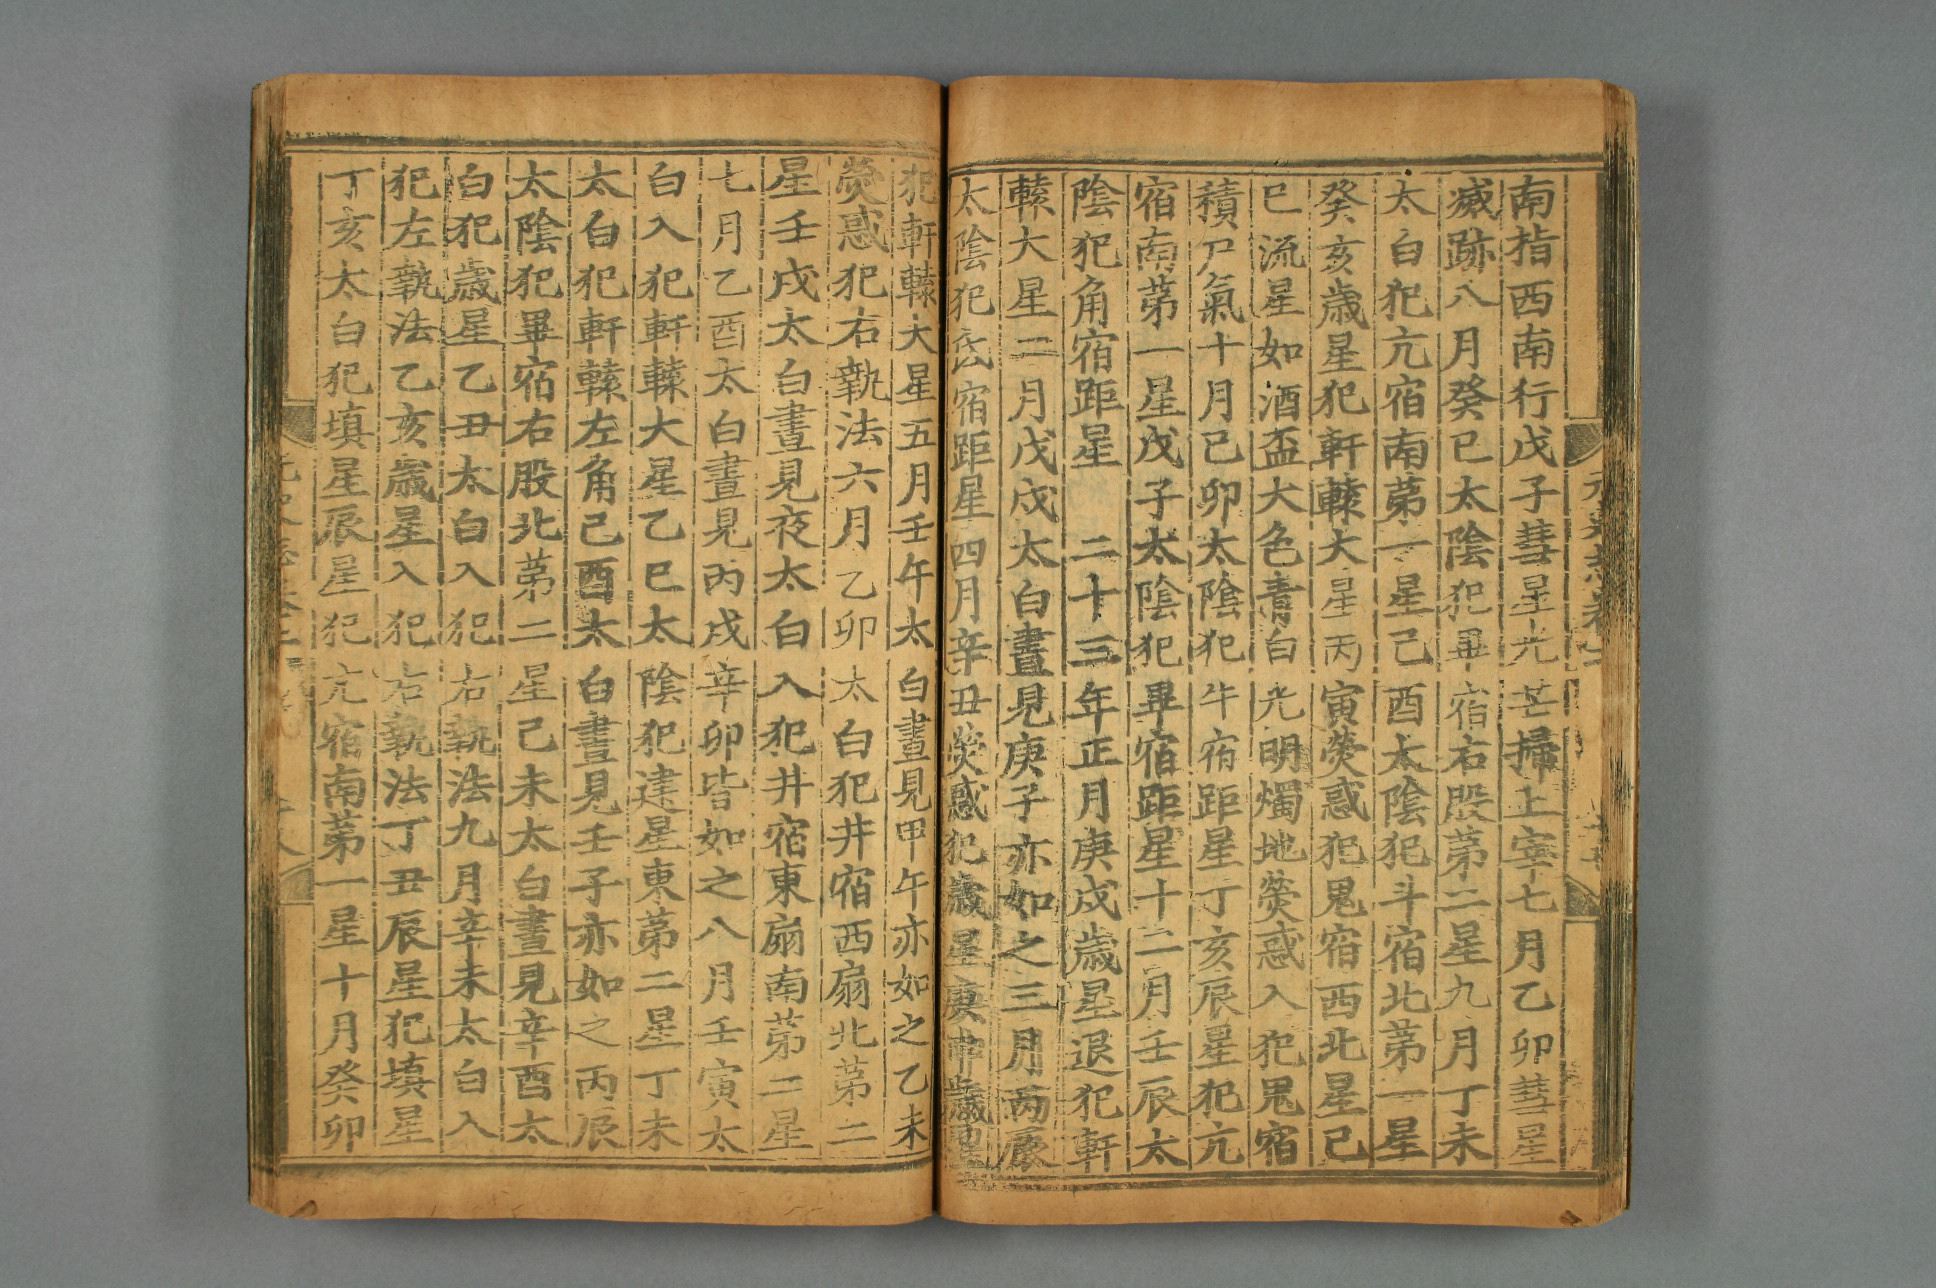 南指西南行戊子彗星光芒掃上宰七月乙卯彗星
滅跡八月癸巳太陰犯畢宿右股第二星九月丁未
太白犯亢宿南第一星己酉太陰犯斗宿北第一星
癸亥歲星犯軒轅大星丙寅熒惑犯鬼宿西北星己
巳流星如酒盃大色青白光明燭地熒惑入犯鬼宿
積尸氣十月己卯太陰犯牛宿距星丁亥辰星犯亢
宿南第一星戊子太陰犯畢宿距星十二月壬辰太
陰犯角宿距星 二十三年正月庚戌歲星退犯軒
轅大星二月戊戌太白晝見庚子亦如之三月丙辰
太陰犯氐宿距星四月辛丑熒惑犯歲星庚申歲星
犯軒轅大星五月壬午太白晝見甲午亦如之乙未
熒惑犯右執法六月乙卯太白犯井宿西扇北第二
星壬戌太白晝見夜太白入犯井宿東扇南第二星
七月乙酉太白晝見丙戌辛卯皆如之八月壬寅太
白入犯軒轅大星乙巳太陰犯建星東第二星丁未
太白犯軒轅左角己酉太白晝見壬子亦如之丙辰
太陰犯畢宿右股北第二星己未太白晝見辛酉太
白犯歲星乙丑太白入犯右執法九月辛未太白入
犯左執法乙亥歲星入犯右執法丁丑辰星犯填星
丁亥太白犯填星辰星犯亢宿南第一星十月癸卯